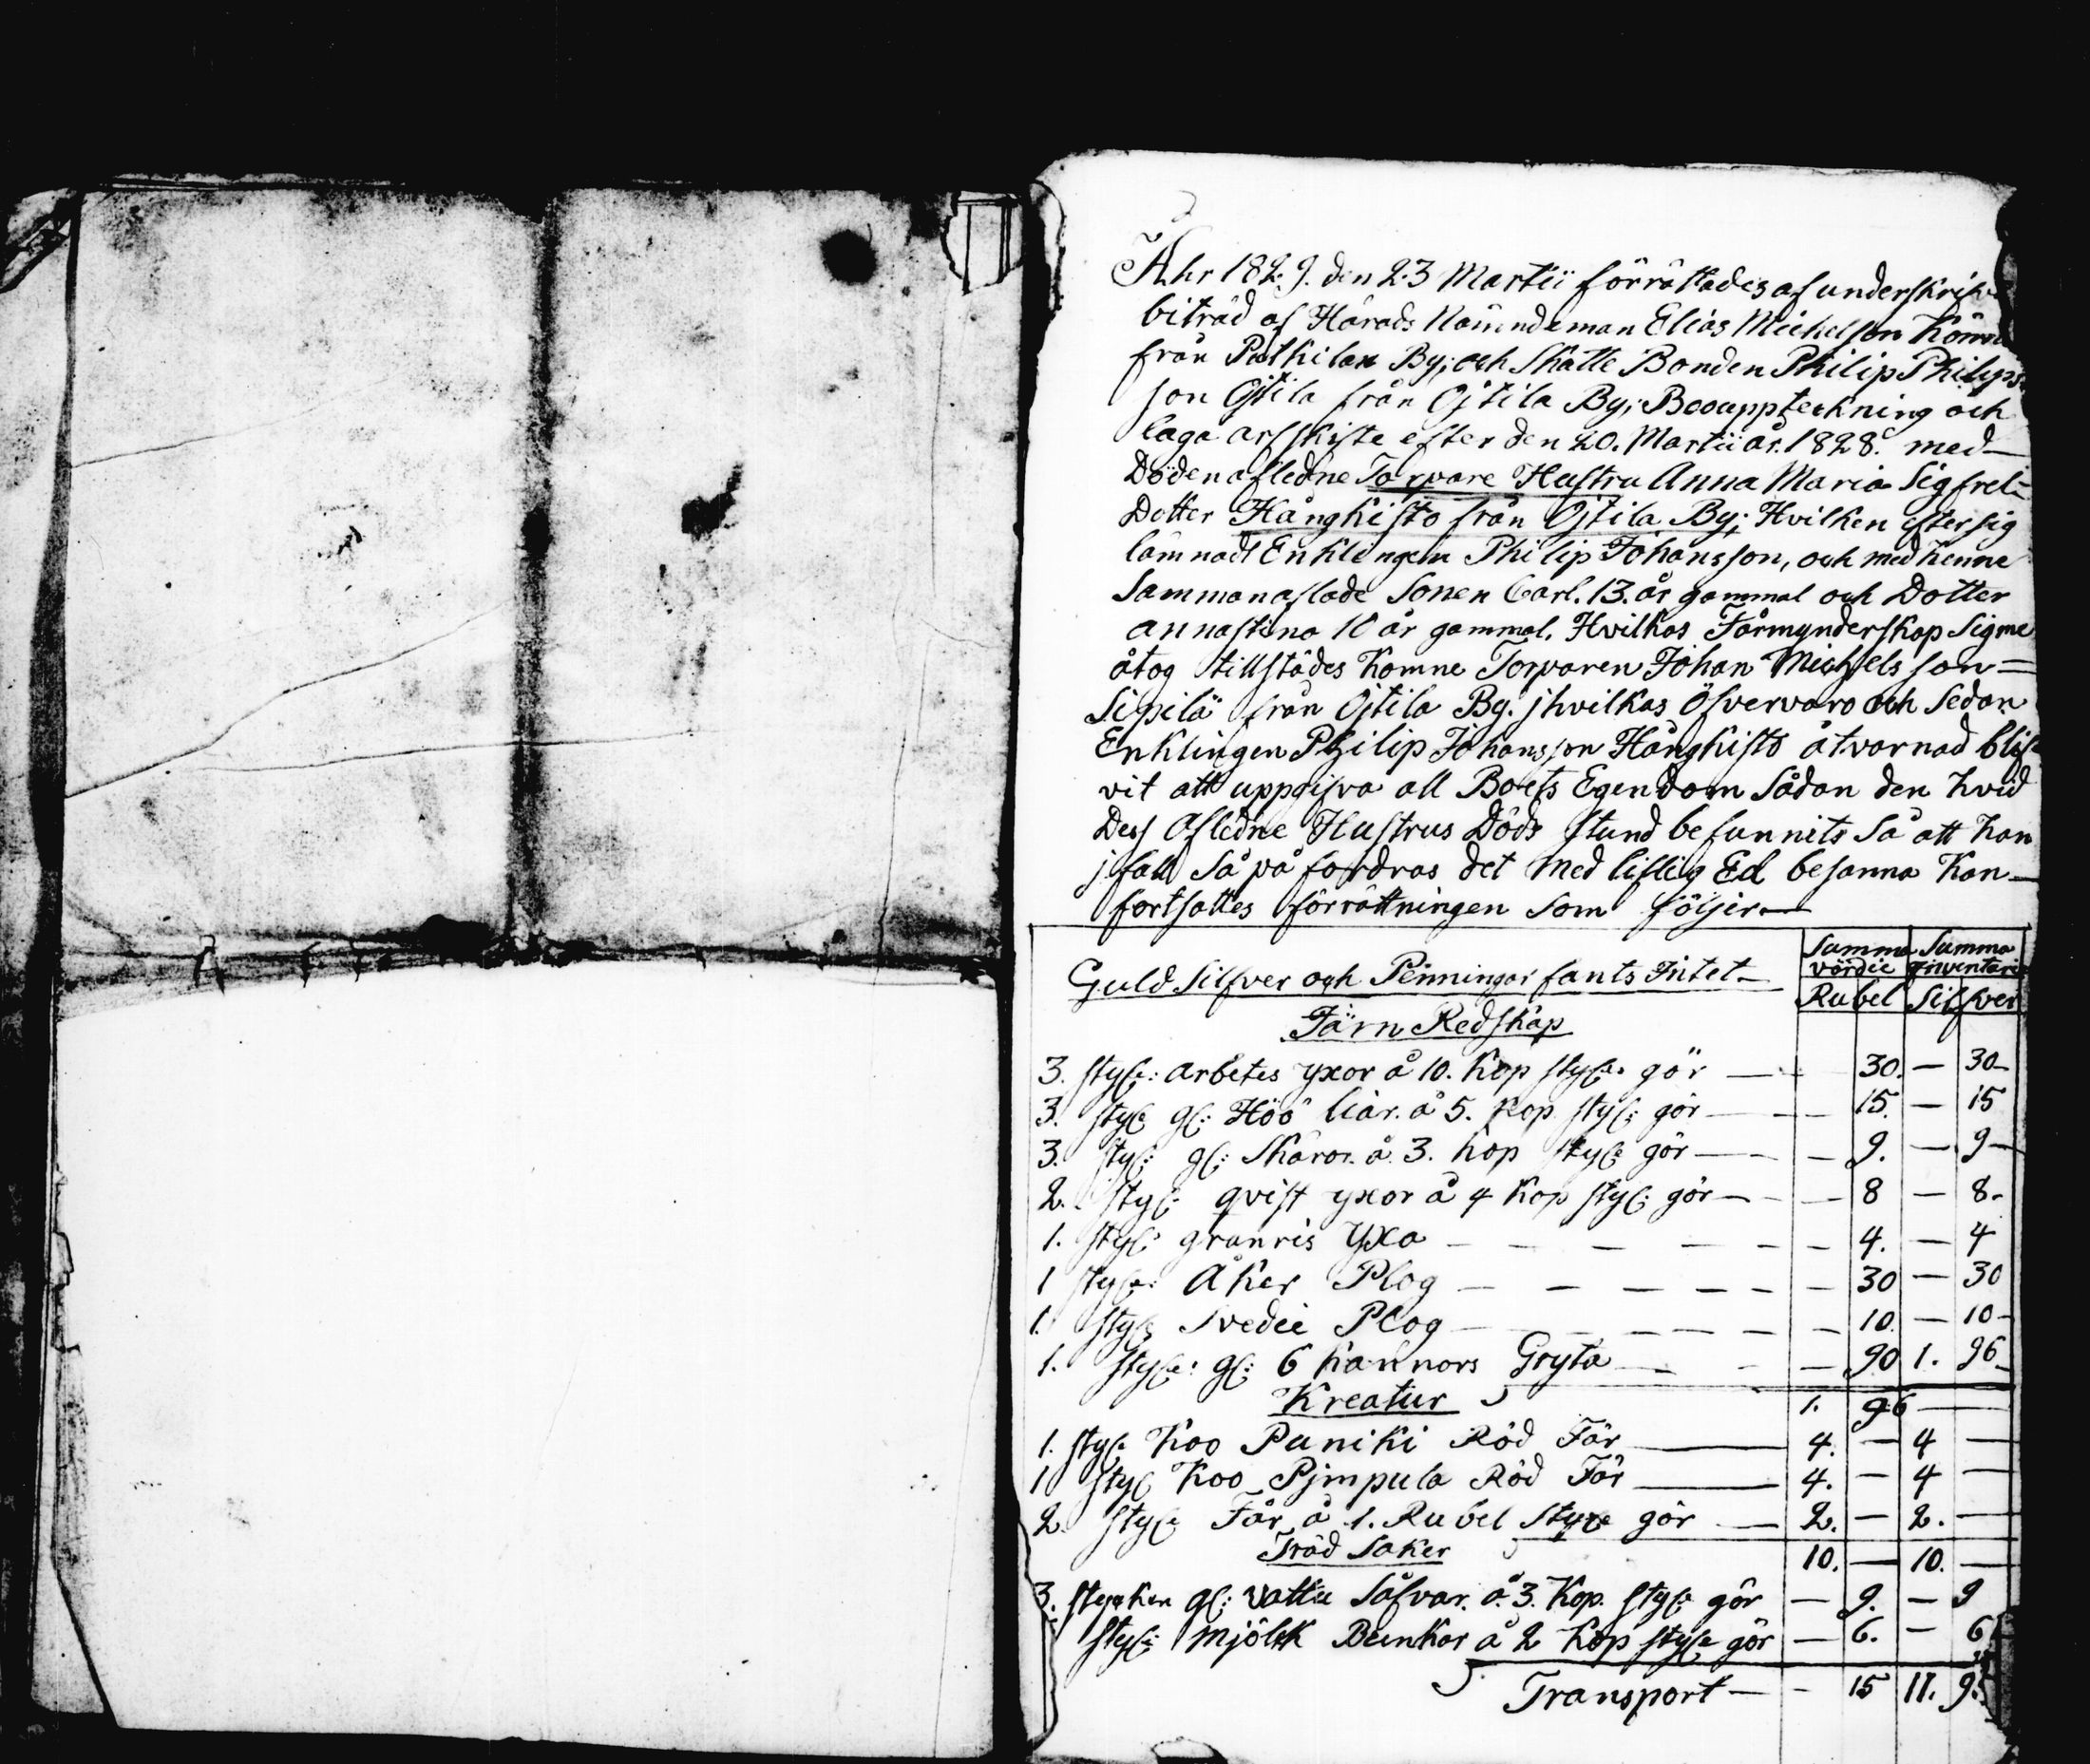 Åhr 1829. den 23 Martii förrättades af underskrif
biträd af Härads Nämndeman Elias Michelson
från By; och Skatte Bonden Philip Philips
son Ojtila från Ojtila By; Boouppteckning och
laga arfskifte efter den 20. Martii år. 1828. med
Döden afledne Torpare Hustru Anna Maria Sigfrel-
Dotter Hånghisto från Ojtila By; Hvilken efter sig
lämnadt Enklingen Philip Johansson, och med henne
Sammanaflade Sonen Carl. 13. år gammal och Dotter
annastina 10 år gammal. Hvilkas Förmynderskap Sig me
åtog tillstädes Komne Torparen Johan Michelsson=
Sipilä från Ojtila By. jhvilkas Öfvervaro och Sedan
Enklingen Philip Johansson Hånghisto åtvarnad blif
vit att uppgifva all Boets Egendom Sådan den hvid
Dess Afledne Hustrus Döds stund befunnits Så att han
jfall Så på fordras det med liflig Ed besanna Kan
fortsattes förrättningen Som följer
Summa värdie Summa Inventari
Guld Silfver och Penningar fants Intet
Rubel Silfver
Järn Redskap
3. styck: arbetes yxor å 10. Kop styck. gör — 30. — 30
3. styck gl: Höö liar. å 5. Kop styck: gör — 15. — 15
3. styck: gl: Skäror. å 3. kop styck gör — 9. — 9
2. styck: qvist yxor å 4 Kop styck: gör — 8 — 8.
1. styck granris Yxa — 4. — 4
1 styck: Åker Plog — 30 — 30
1. styck Svedie Plog — 10. — 10
1. styck: gl: 6 kannors Gryta — 90 1. 96
Kreatur 1. 96 —
1. styck Koo Puniki Röd Fär — 4. — 4 —
1 styck Koo Pjmpula Röd Fär — 4. — 4 —
2 styck Får å 1. Rubel styck gör — 2. — 2. —
Träd Saker 10. — 10. —
3. stycken gl: vattu Såfvar. å. 3. Kop. styck gör — 9. — 9
styck: Mjölk Bunkar å 2 Kop styck gör — 6. — 6
Transport — 15 11. 9